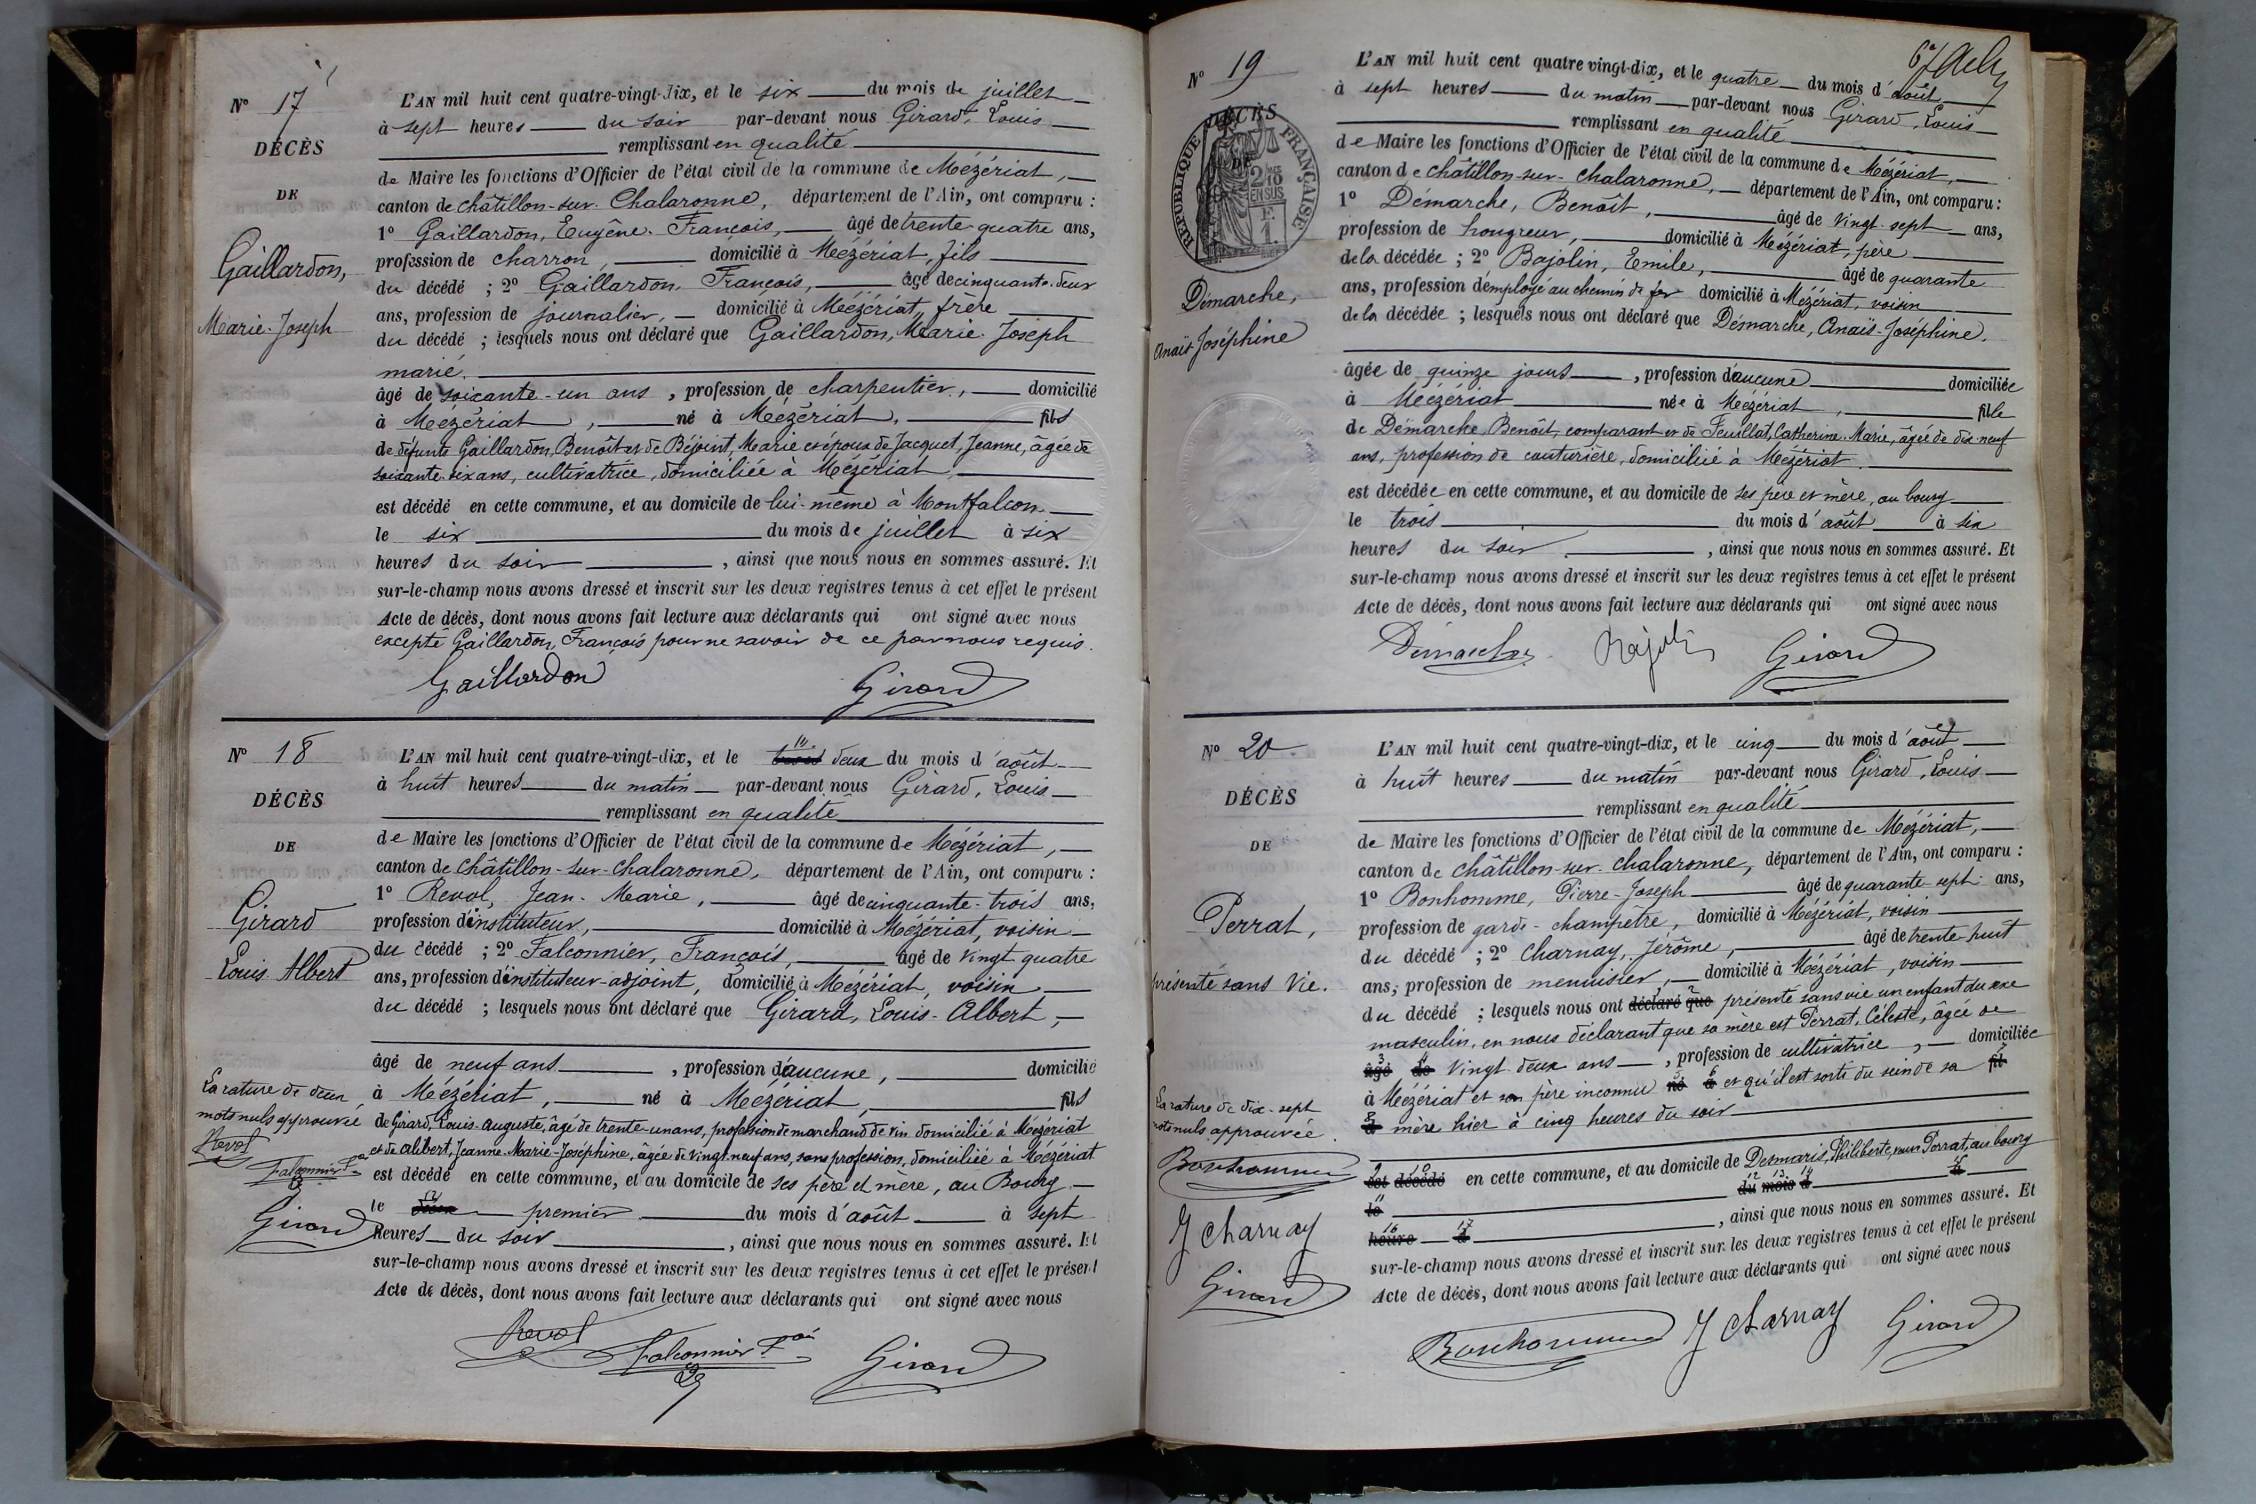 N° 17
DÉCÈS
DE
Gaillardon,
Marie-Joseph
L'AN mil huit cent quatre-vingt-dix, et le six du mois de juillet
à sept heures du soir par-devant nous Girard, Louis
remplissant en qualité
de Maire les fonctions d'Officier de l'état civil de la commune de Mézériat,
canton de Châtillon-sur-Chalaronne, département de l'Ain, ont comparu :
1° Gaillardon, Eugène-François, âgé de trente quatre ans,
profession de charron, domicilié à Mézériat, fils
du décédé ; 2° Gaillardon, François, âgé de cinquante-deux
ans, profession de journalier, domicilié à Mézériat, frère
du décédé ; lesquels nous ont déclaré que Gaillardon, Marie-Joseph
marié.
âgé de soixante-un ans, profession de charpentier, domicilié
à Mézériat, né à Mézériat, fils
de défunts Gaillardon, Benoît et de Béjoint, Marie et époux de Jacquet, Jeanne, âgée de
soixante-six ans, cultivatrice, domiciliée à Mézériat,
est décédé en cette commune, et au domicile de lui-même à Montfalcon
le six du mois de juillet à six
heures du soir, ainsi que nous nous en sommes assuré. Et
sur-le-champ nous avons dressé et inscrit sur les deux registres tenus à cet effet le présent
Acte de décès, dont nous avons fait lecture aux déclarants qui ont signé avec nous
excepté Gaillardon, François pour ne savoir de ce par nous requis.
Gaillardon Girard
N° 18
DÉCÈS
DE
Girard
Louis-Albert
L'AN mil huit cent quatre-vingt-dix, et le trois deux du mois d'août
à huit heures du matin par-devant nous Girard, Louis
remplissant en qualité
de Maire les fonctions d'Officier de l'état civil de la commune de Mézériat,
canton de Châtillon-sur-Chalaronne, département de l'Ain, ont comparu :
1° Revol, Jean-Marie, âgé de cinquante-trois ans,
profession d'instituteur, domicilié à Mézériat, voisin
du décédé ; 2° Falconnier, François, âgé de vingt quatre
ans, profession d'instituteur-adjoint, domicilié à Mézériat, voisin
du décédé ; lesquels nous ont déclaré que Girard, Louis-Albert,
âgé de neuf ans, profession d'aucune, domicilié
à Mézériat, né à Mézériat, fils
de Girard, Louis-Auguste, âgé de trente-un ans, profession de marchand de vin domicilié à Mézériat
et de Alibert, Jeanne-Marie-Joséphine, âgée de vingt-neuf ans, sans profession, domiciliée à Mézériat
est décédé en cette commune, et au domicile de ses père et mère, au Bourg
le deux premier du mois d'août à sept
heures du soir, ainsi que nous nous en sommes assuré. Et
sur-le-champ nous avons dressé et inscrit sur les deux registres tenus à cet effet le présent
Acte de décès, dont nous avons fait lecture aux déclarants qui ont signé avec nous
Revol Falconnier Fçois Girard
La rature de deux
mots nuls approuvée
Revol
Falconnier Fçois
Girard
N° 19
DÉCÈS
DE
RÉPUBLIQUE FRANÇAISE
2/10 EN SUS
F. 1.
Démarche,
Anaïs-Joséphine
L'AN mil huit cent quatre vingt-dix, et le quatre du mois d'août
à sept heures du matin par-devant nous Girard, Louis
remplissant en qualité
de Maire les fonctions d'Officier de l'état civil de la commune de Mézériat,
canton de Châtillon-sur-Chalaronne, département de l'Ain, ont comparu :
1° Démarche, Benoît, âgé de vingt-sept ans,
profession de hongreur, domicilié à Mézériat, père
de la décédée ; 2° Bajolin, Emile, âgé de quarante
ans, profession d'employé au chemin de fer domicilié à Mézériat, voisin
de la décédée ; lesquels nous ont déclaré que Démarche, Anaïs-Joséphine.
âgée de quinze jours, profession d'aucune domiciliée
à Mézériat née à Mézériat, fille
de Démarche, Benoît, comparant et de Feuillat, Catherine-Marie, âgée de dix-neuf
ans, profession de couturière, domiciliée à Mézériat.
est décédée en cette commune, et au domicile de ses père et mère, au bourg
le trois du mois d'août à six
heures du soir, ainsi que nous nous en sommes assuré. Et
sur-le-champ nous avons dressé et inscrit sur les deux registres tenus à cet effet le présent
Acte de décès, dont nous avons fait lecture aux déclarants qui ont signé avec nous
Démarche Bajolin Girard
N° 20
DÉCÈS
DE
Perrat,
présenté sans vie.
L'AN mil huit cent quatre-vingt-dix, et le cinq du mois d'août
à huit heures du matin par-devant nous Girard, Louis
remplissant en qualité
de Maire les fonctions d'Officier de l'état civil de la commune de Mézériat,
canton de Châtillon-sur-Chalaronne, département de l'Ain, ont comparu :
1° Bonhomme, Pierre-Joseph âgé de quarante-sept ans,
profession de garde-champêtre, domicilié à Mézériat, voisin
du décédé ; 2° Charnay, Jérôme, âgé de trente-huit
ans, profession de menuisier, domicilié à Mézériat, voisin
du décédé ; lesquels nous ont déclaré que présenté sans vie un enfant du sexe
masculin, en nous déclarant que sa mère est Perrat, Céleste, âgée de
âgé de vingt-deux ans, profession de cultivatrice, domiciliée
à Mézériat et son père inconnu né à et qu'il est sorti du sein de sa fil
d mère hier à cinq heures du soir
est décédé en cette commune, et au domicile de Desmaris, Philiberte, veuve Perrat, au bourg
le du mois d à
heure d, ainsi que nous nous en sommes assuré. Et
sur-le-champ nous avons dressé et inscrit sur les deux registres tenus à cet effet le présent
Acte de décès, dont nous avons fait lecture aux déclarants qui ont signé avec nous
Bonhomme J Charnay Girard
La rature de dix-sept
mots nuls approuvée.
Bonhomme
J Charnay
Girard